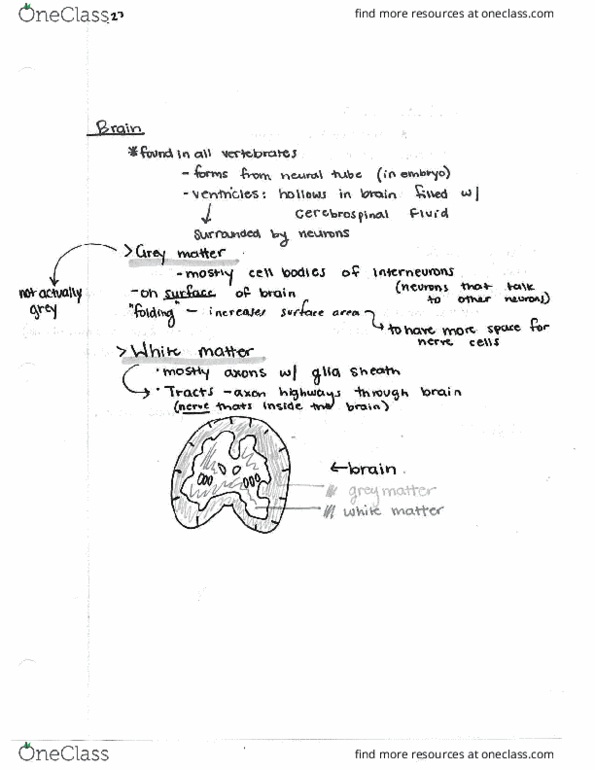 OneClass
23
find more resources at oneclass.com
Brain
*found in all vertebrates
- forms from neural tube (in embryo)
- ventricles: hollows in brain filled w/
cerebrospinal fluid
surrounded by neurons
> Grey matter
not actually
grey
- mostly cell bodies of interneurons
(neurons that talk
to other neurons)
- on surface of brain
"folding" - increases surface area
to have more space for
nerve cells
> White matter
• mostly axons w/ glia sheath
• Tracts - axon highways through brain
(nerve thats inside the brain)
← brain
grey matter
white matter
OneClass
find more resources at oneclass.com